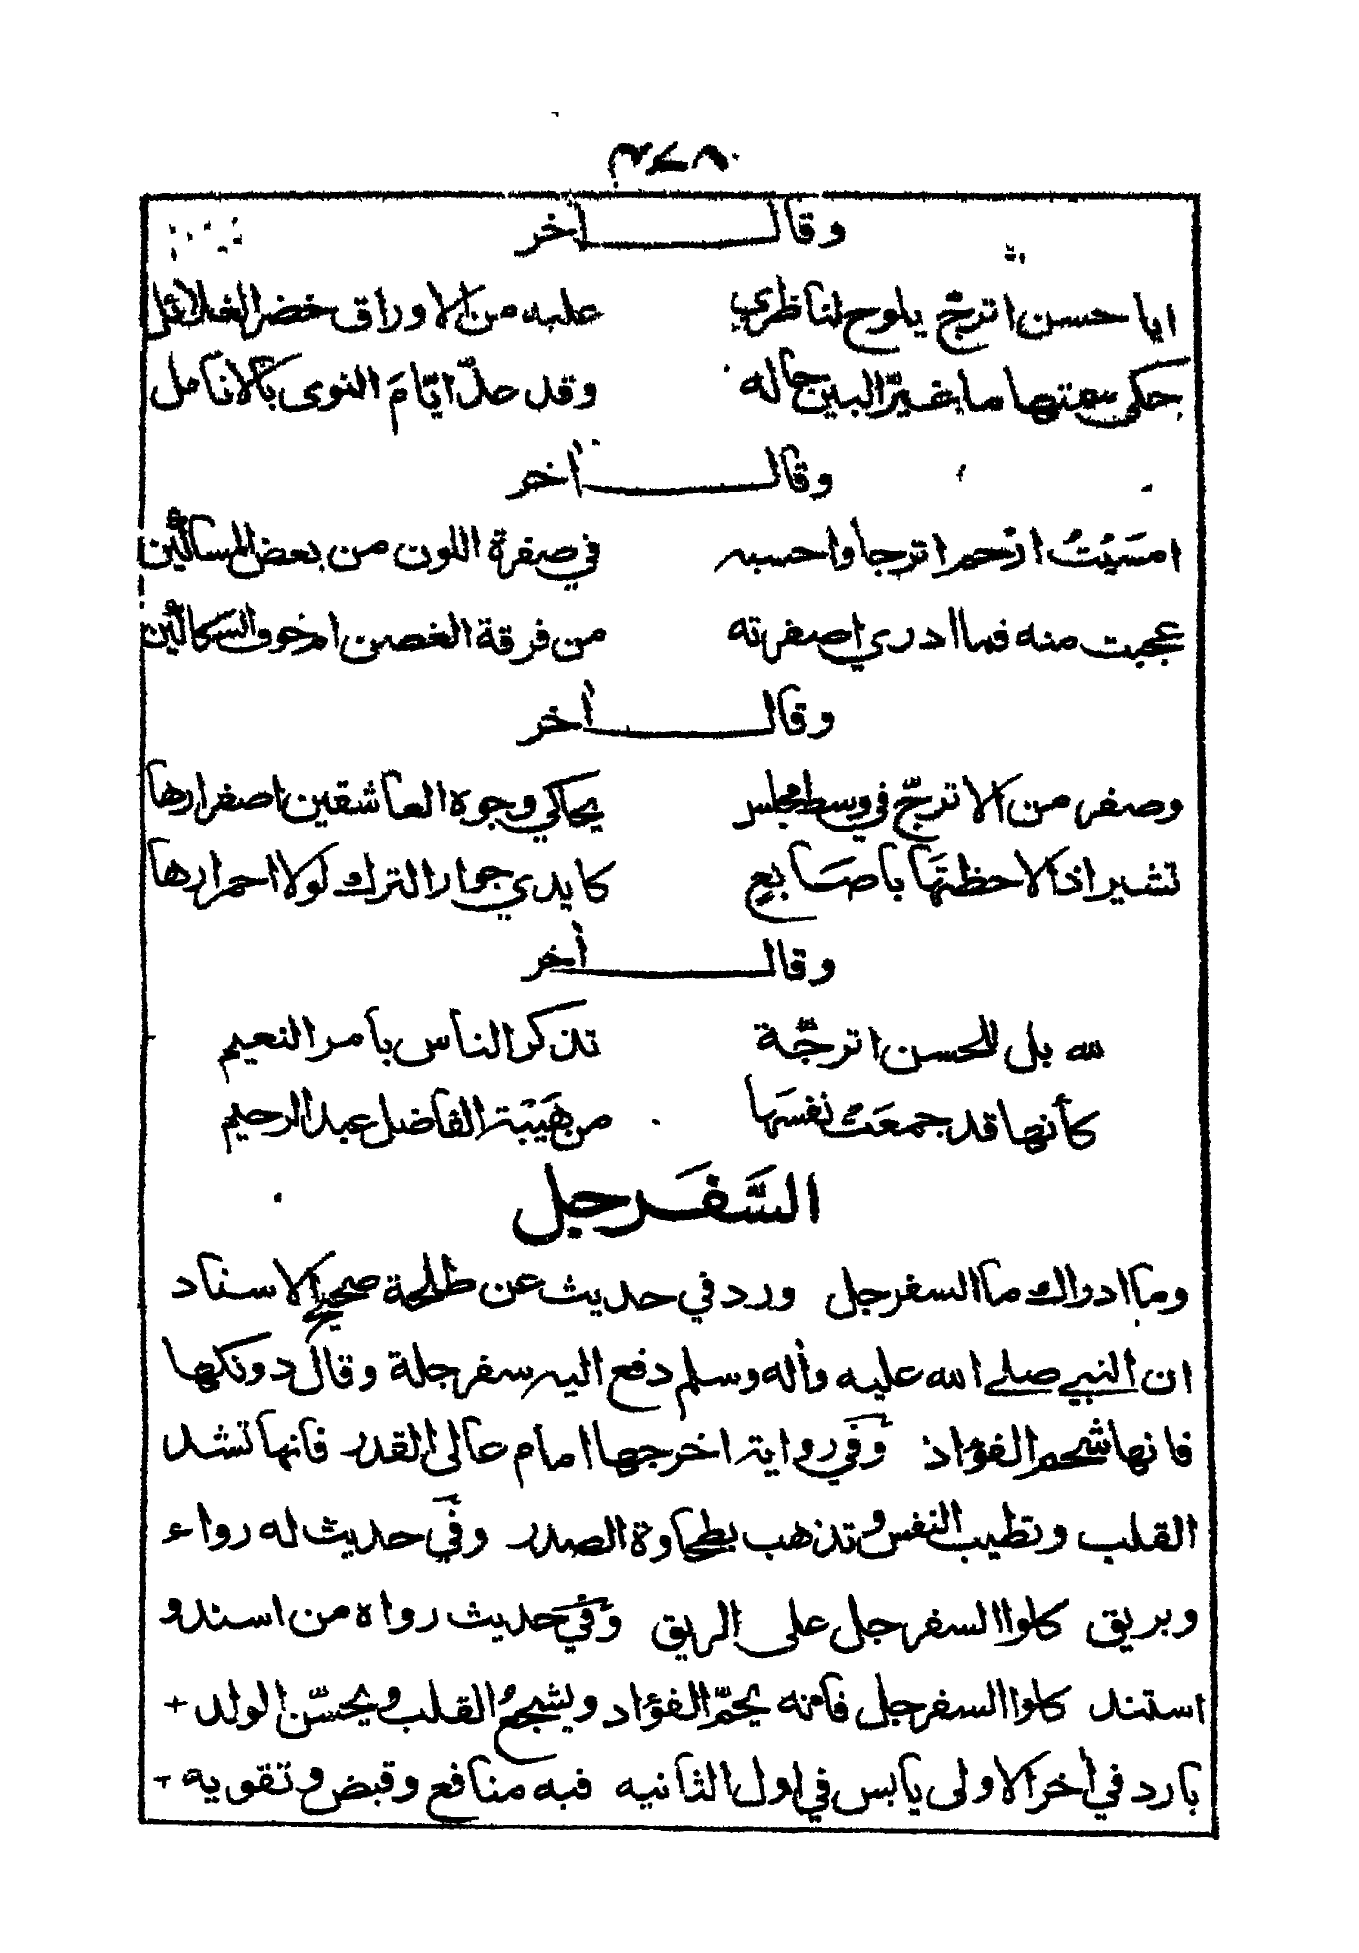 وقال أخر
ايا حسن اترجّ يلوح لناظري عليه من الاوراق خضر الغلائل
حكى سعتها ما يغيّر البين جماله وقد حلّ ايّام النوى بالانامل
وقال أخر
امسَيْتُ ارْحم اترجا واحسبه في صفرة اللون من بعض المساكين
عجبت منه فما ادري اصفرته من فرقة الغصن ام خوف السكاكين
وقال أخر
وصفر من الاترجّ في وسط مجلس يحاكي وجوه العاشقين اصفرارها
تشير اذا لاحظتَها باصابع كايدي جوار الترك لولا احمرارها
وقال أخر
لله بل للحسن اترجّة تذكر الناس بأمر النعيم
كأنها قد جمعَتْ نفسَها من هَيْبَة الفاضل عبد الرحيم
السَّفَرجل
وما ادراك ما السفرجل ورد في حديث عن طلحة صحيح الاسناد
ان النبي صلى الله عليه وأله وسلم دفع اليه سفرجلة وقال دونكها
فانها شحم الفؤاد وفي رواية اخرجها امام عالى القدر فانها تشد
القلب وتطيب النفس وتذهب بطحاوة الصدر وفي حديث له رواء
وبريق كلوا السفرجل على الريق وفي حديث رواه من اسند و
استند كلوا السفرجل فانه يحمّ الفؤاد ويشجع القلب ويحسّن الولد
بارد في أخر الاولى يابس في اول الثانيه فيه منافع وقبض وتقويه